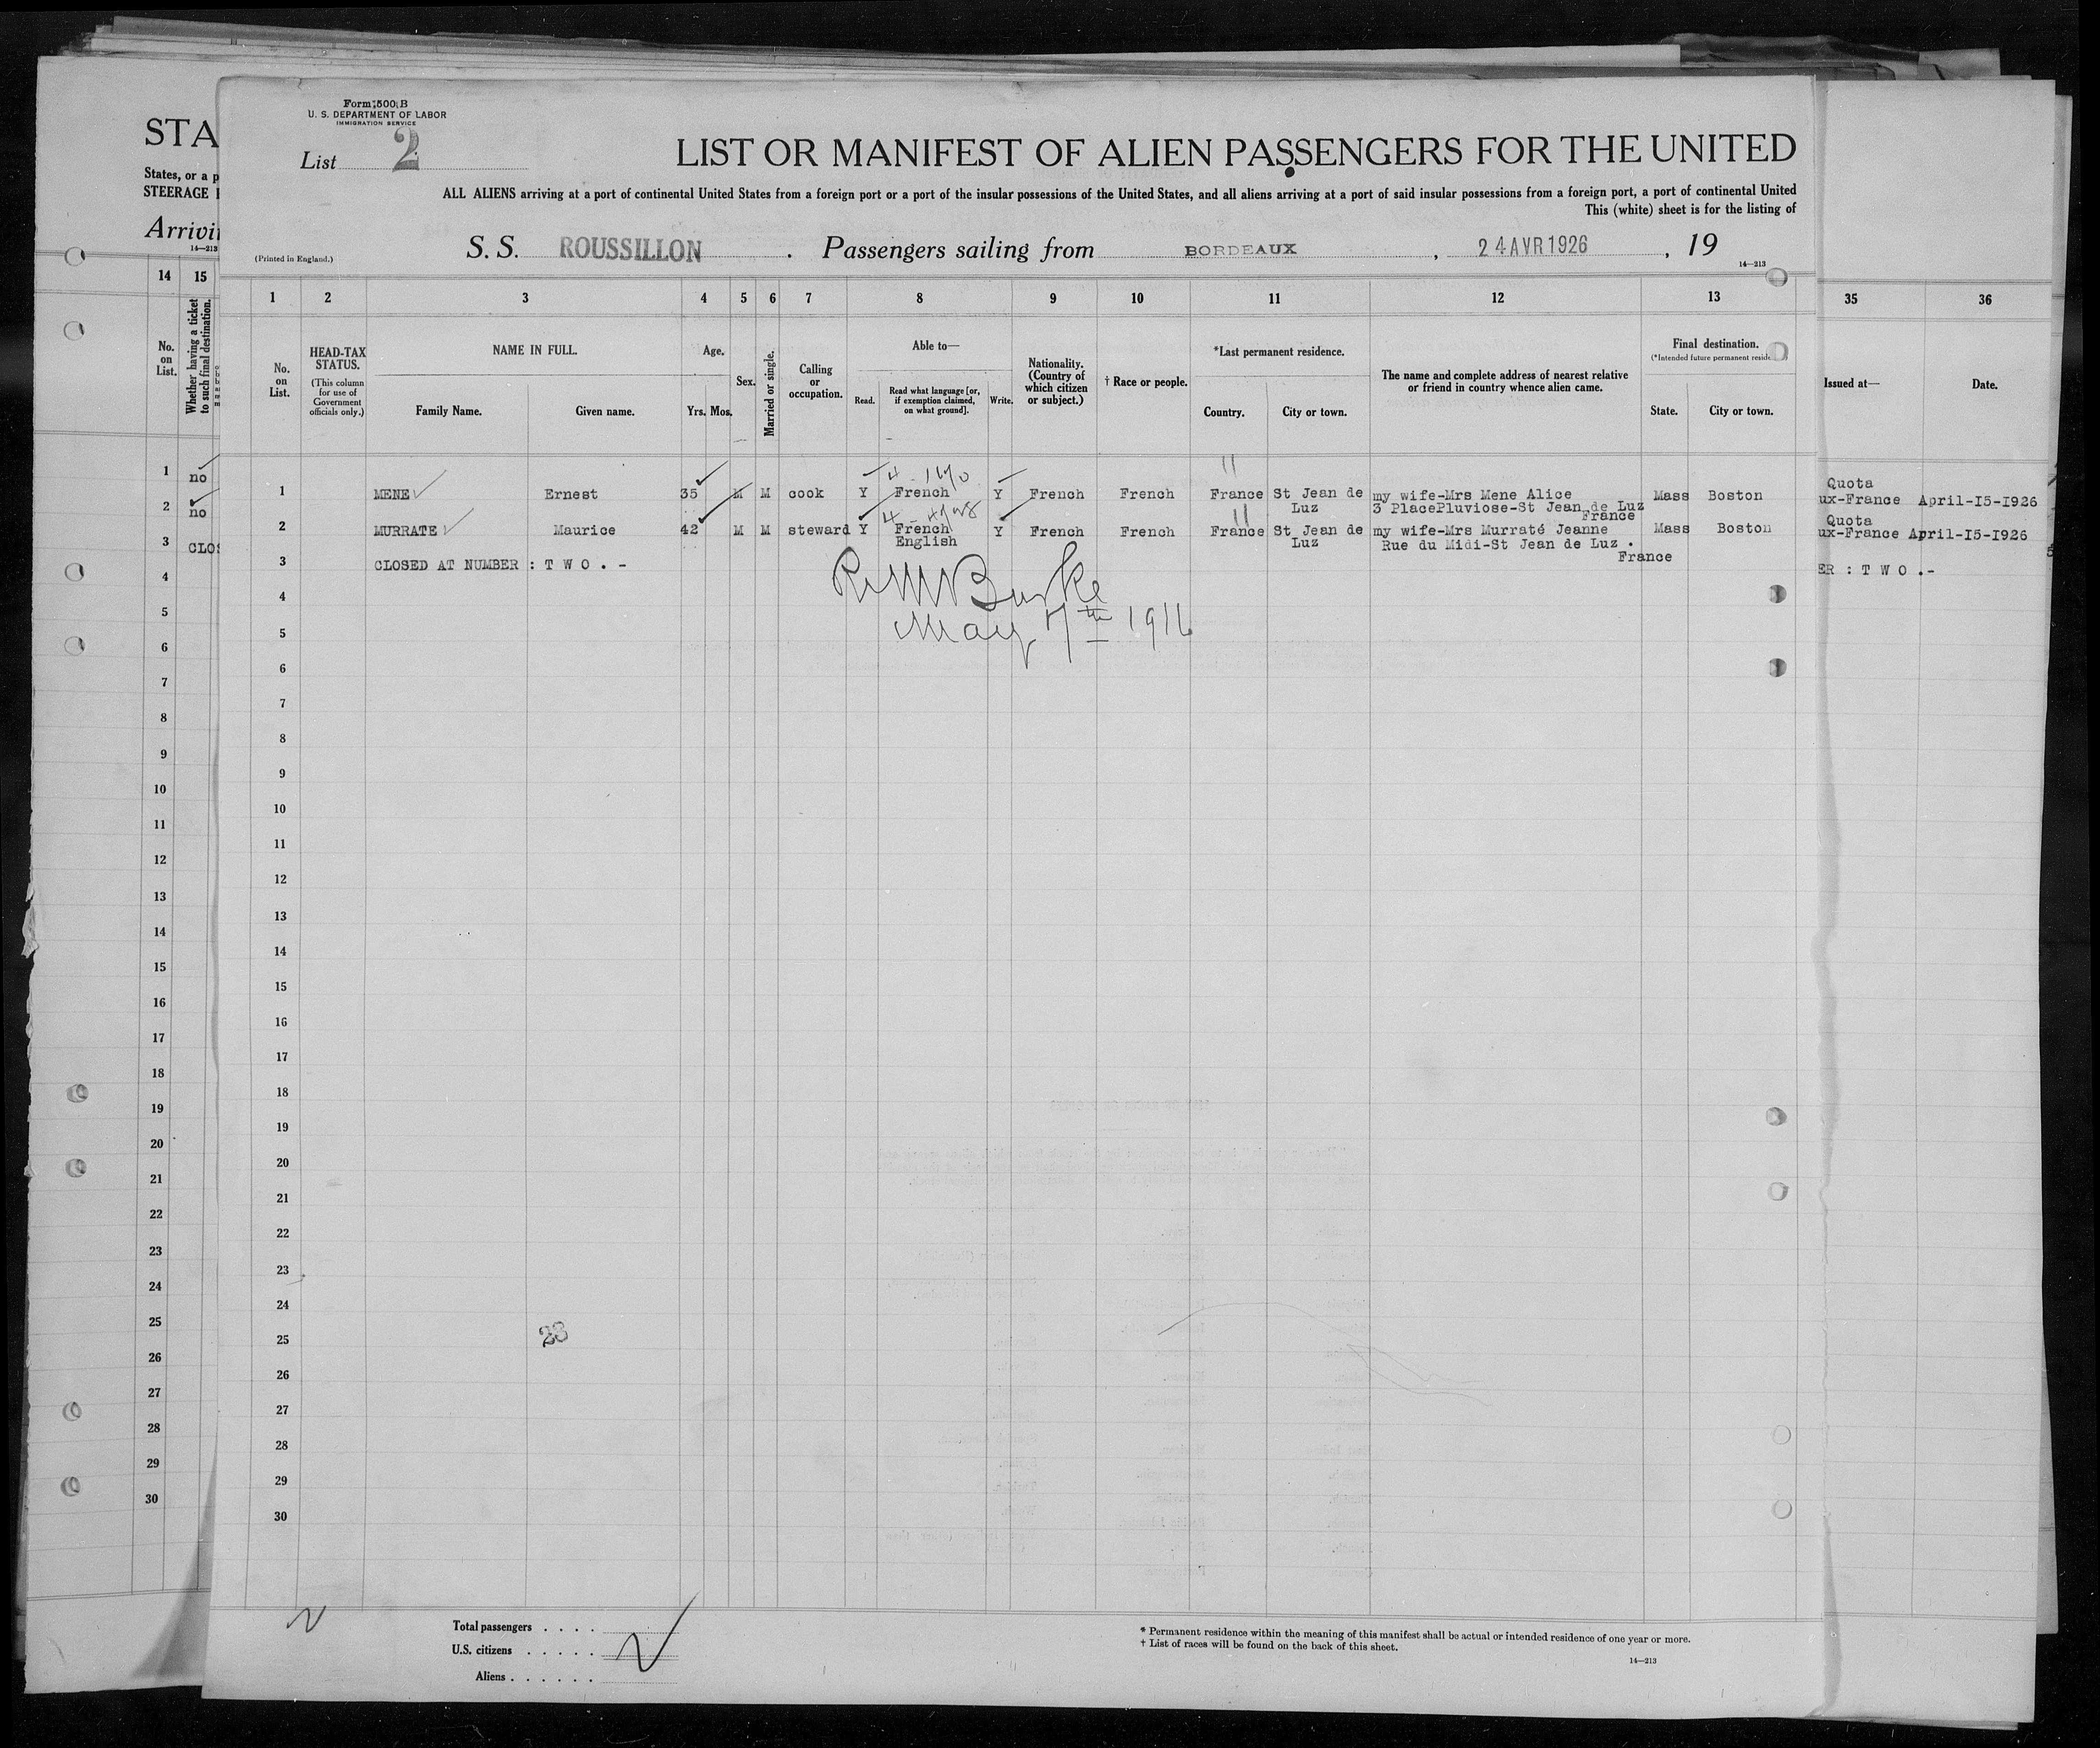 Form 500 B
U. S. DEPARTMENT OF LABOR
IMMIGRATION SERVICE
List 2
LIST OR MANIFEST OF ALIEN PASSENGERS FOR THE UNITED
ALL ALIENS arriving at a port of continental United States from a foreign port or a port of the insular possessions of the United States, and all aliens arriving at a port of said insular possessions from a foreign port, a port of continental United
This (white) sheet is for the listing of
(Printed in England.)
S. S. ROUSSILLON . Passengers sailing from BORDEAUX , 24 AVR 1926 , 19
14—213
STA
States, or a p
STEERAGE
Arrivi
14—213
14 15
No. on List.
Whether having a ticket to such final destination.
1 2 3 4 5 6 7 8 9 10 11 12 13
35 36
No. on List.
HEAD-TAX STATUS.
(This column for use of Government officials only.)
NAME IN FULL.
Family Name. Given name.
Age.
Yrs. Mos.
Sex.
Married or single.
Calling or occupation.
Able to—
Read. Read what language [or, if exemption claimed, on what ground]. Write.
Nationality. (Country of which citizen or subject.)
† Race or people.
*Last permanent residence.
Country. City or town.
The name and complete address of nearest relative or friend in country whence alien came.
Final destination.
(*Intended future permanent resid
State. City or town.
Issued at— Date.
1 no
2 no
3 CLOS
4
5
6
7
8
9
10
11
12
13
14
15
16
17
18
19
20
21
22
23
24
25
26
27
28
29
30
11
1 MENE Ernest 35 M M cook Y French Y French French France St Jean de Luz my wife-Mrs Mene Alice Mass Boston
3 PlacePluviose-St Jean de Luz
France
Quota
ux-France April-I5-I926
11
2 MURRATE Maurice 42 M M steward Y French Y French French France St Jean de Luz my wife-Mrs Murraté Jeanne Mass Boston
English
Rue du Midi-St Jean de Luz .
France
Quota
ux-France April-I5-I926
3 CLOSED AT NUMBER : T W O . -
ER : T W O .-
Burke
May 7th 1916
4
5
6
7
8
9
10
11
12
13
14
15
16
17
18
19
20
21
22
23
24
25
26
27
28
29
30
23
Total passengers . . . .
U.S. citizens . . . . .
Aliens . . . . . .
* Permanent residence within the meaning of this manifest shall be actual or intended residence of one year or more.
† List of races will be found on the back of this sheet.
14—213